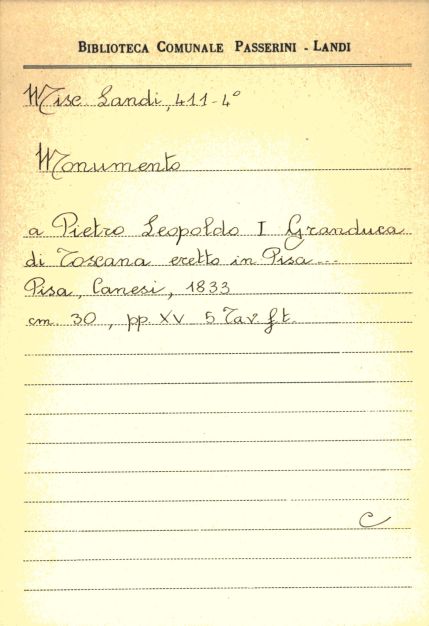 BIBLIOTECA COMUNALE PASSERINI - LANDI
Misc Landi, 411-4°
Monumento
a Pietro Leopoldo I Granduca
di Toscana eretto in Pisa...
Pisa, Canesi, 1833
cm. 30, pp. XV 5 Tav. f.t.
C